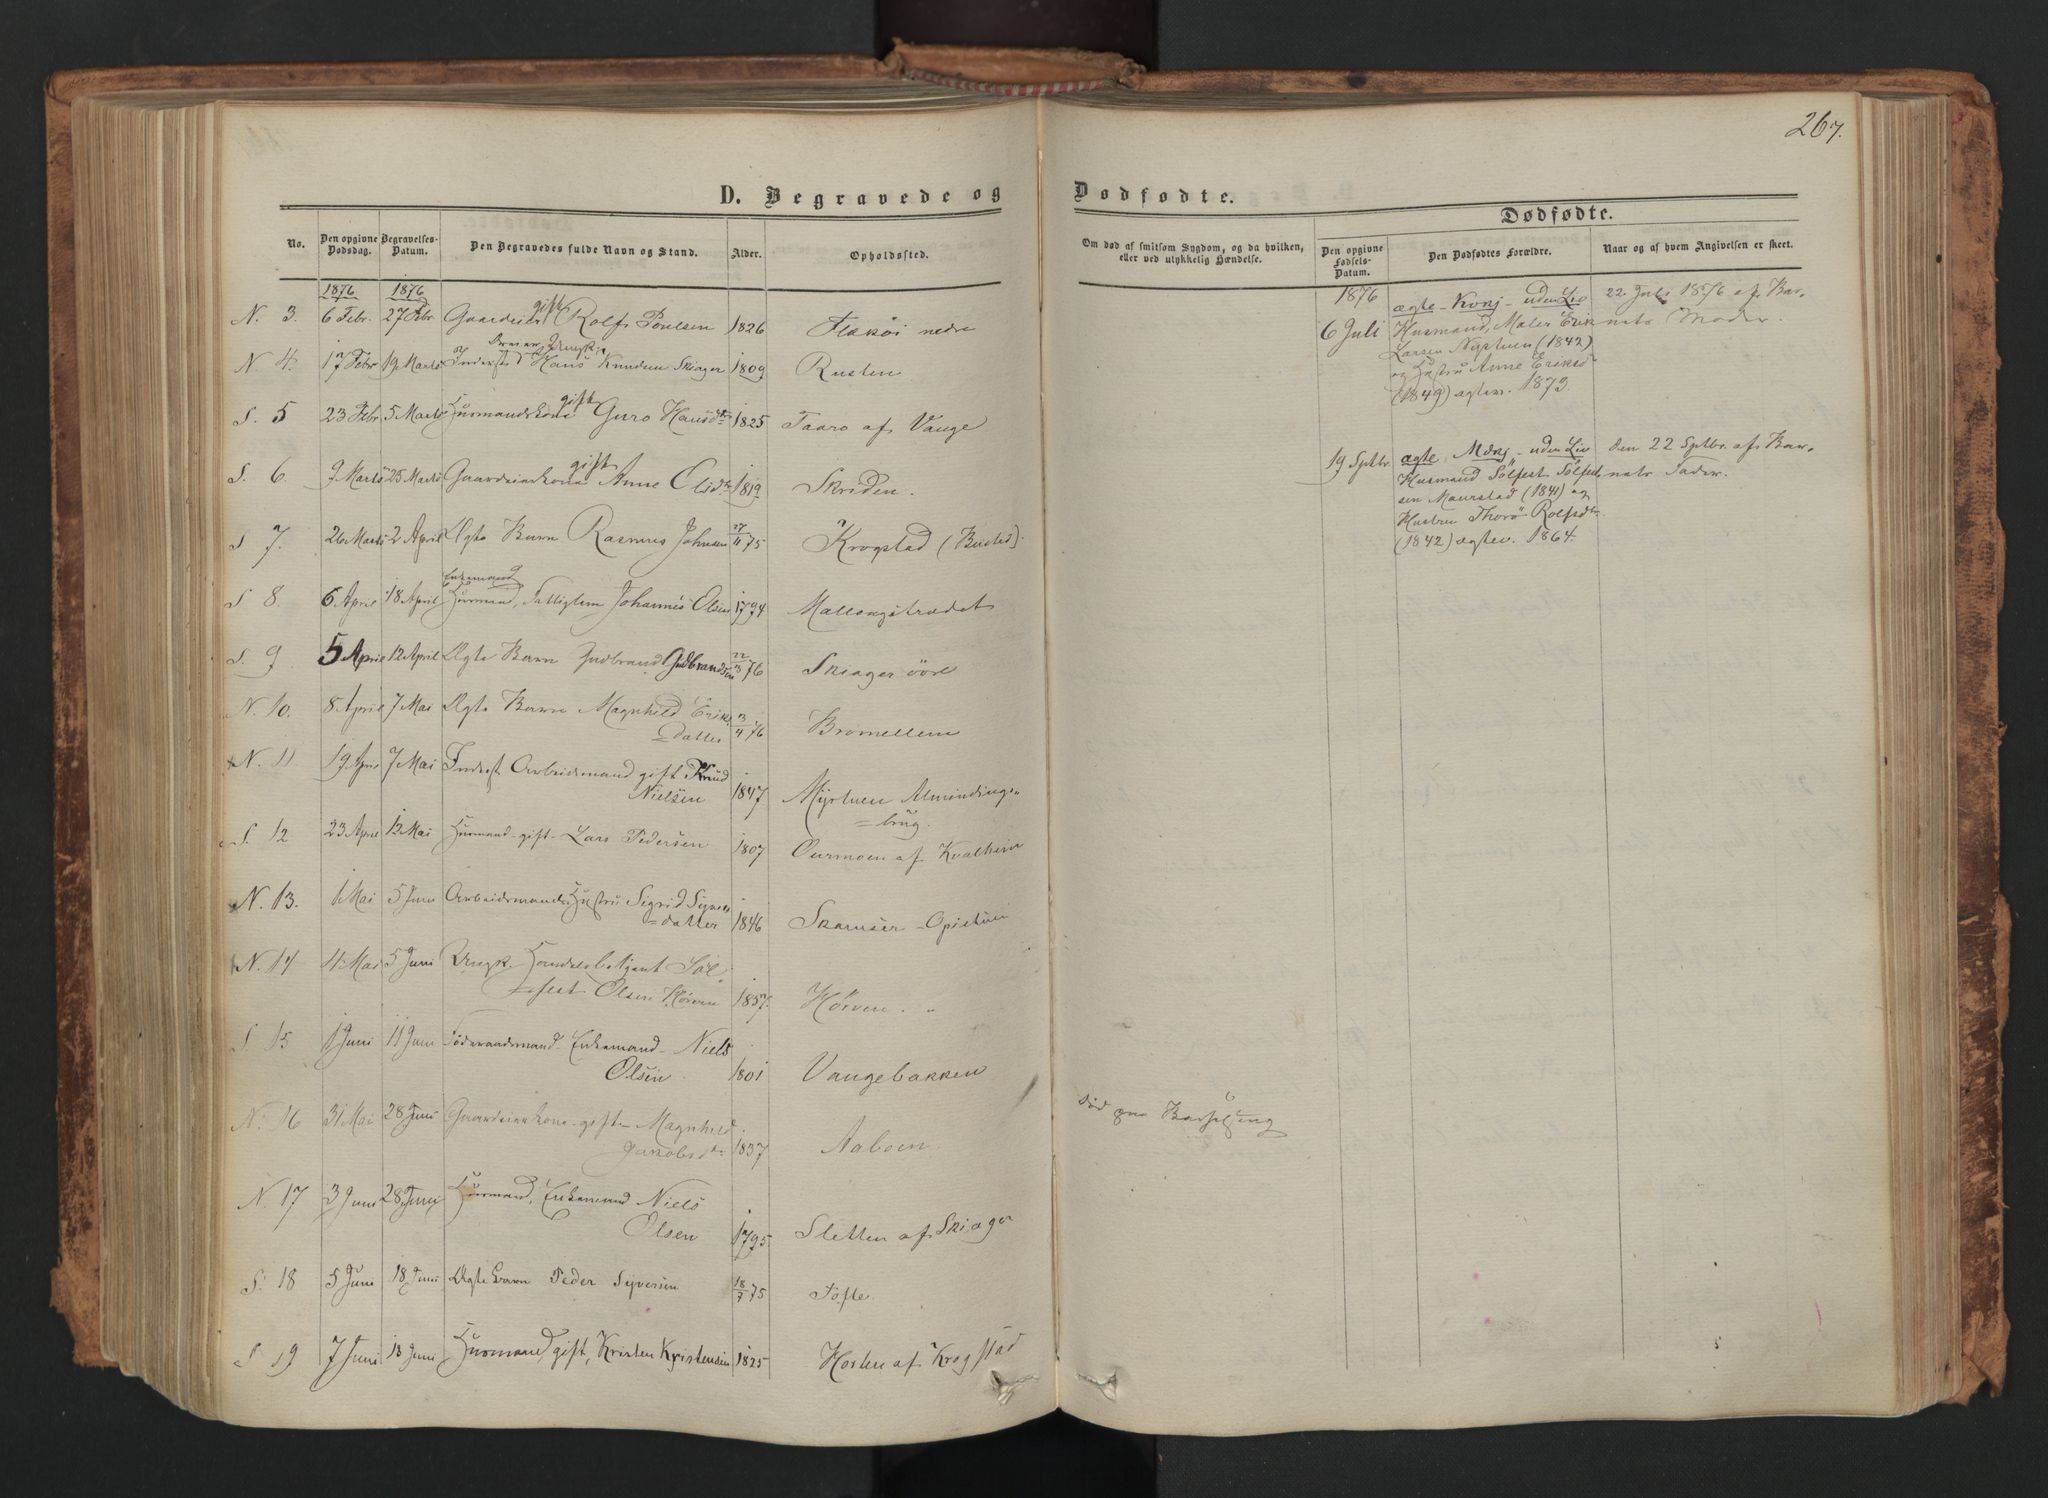 267.
D. Begravede og Dødfødte.
Dødfødte.
No. Den opgivne Dødsdag. Begravelses-Datum. Den Begravedes fulde Navn og Stand. Alder. Opholdssted.
Om død af smitsom Sygdom, og da hvilken, eller ved ulykkelig Hændelse. Den opgivne Fødsels-Datum. Den Dødfødtes Forældre. Naar og af hvem Angivelsen er skeet.
1876 1876
N. 3. 6 Febr. 27 Febr. Gaardeier gift Rolf Poulsen 1826 Flækøi nedre
N. 4. 17 Febr 19 Marts Inderst Ungk. Hans Knudsen Skiager 1809 Rusten
S. 5 23 Febr. 5 Marts Husmandskone gift Guro Hansdtr 1825 Taaro af Vange
S. 6. 9 Marts 25 Marts Gaardeierkone gift Anne Olsdtr 1819 Skriden.
S 7. 26 Marts 2 April Ægte Barn Rasmus Johnsen 27/11 75 Krogstad (Busted).
S 8. 6 April 18 April Enkemand Husmand, Fattiglem Johannes Olsen 1794 Mællongstrædet
S. 9 5 April 12 April Ægte Barn Gudbrand Gudbrandsen 22/3 76 Skiager övre
N. 10. 8 April 7 Mai Ægte Barn Magnhild Eriks
=datter 3/4 76 Bromellem
N. 11 19 Apri 7 Mai Inderst Arbeidsmand gift Knud
Nielsen 1847 Myrtuen Almindings=
=brug.
S. 12 23 April 12 Mai Husmand - gift - Lars Pedersen 1807 Ourmoen af Kvalheim
N. 13. 1 Mai 5 Juni Arbeidsmands Hustru Sigrid Syvers
=datter 1846 Skamsar - Opistuen
N. 14 4 Mai 5 Juni Ungk. Handelsbetjent Söl
=fest Olsen Hörven 1857. Hörven.
S. 15 1 Juni 11 Juni Föderaadsmand - Enkemand - Niels
Olsen. 1801 Vangebakken
N. 16 31 Mai 28 Juni Gaardeierkone - gift - Magnhild
Jakobsdtr 1837 Aaboen. död paa Barselseng
N. 17 3 Juni 28 Juni Husmand, Enkemand Niels
Olsen 1795 Sletten af Skiager
S. 18 5 Juni 18 Juni Ægte Barn Peder Syversen 18/7 75 Töfte.
S 19 7 Juni 13 Juni Husmand, gift, Kristen Kristensen 1825 Horten af Krogstad
1876
6 Juli ægte - Kvkj - uden Liv 22 Juli 1876 af Bar-
Husmand, Maler Erik nets Moder.
Larsen Nystuen (1842)
og Hustru Anne Eriksd
(1849) ægtev. 1873.
19 Sptbr. ægte, Mdkj - uden Liv den 22 Sptbr. af Bar-
Husmand Sölfest Sölfest nets Fader.
sen Maurstad (1841) og
Hustru Thorö Rolfsdtr
(1842) ægtev. 1864.